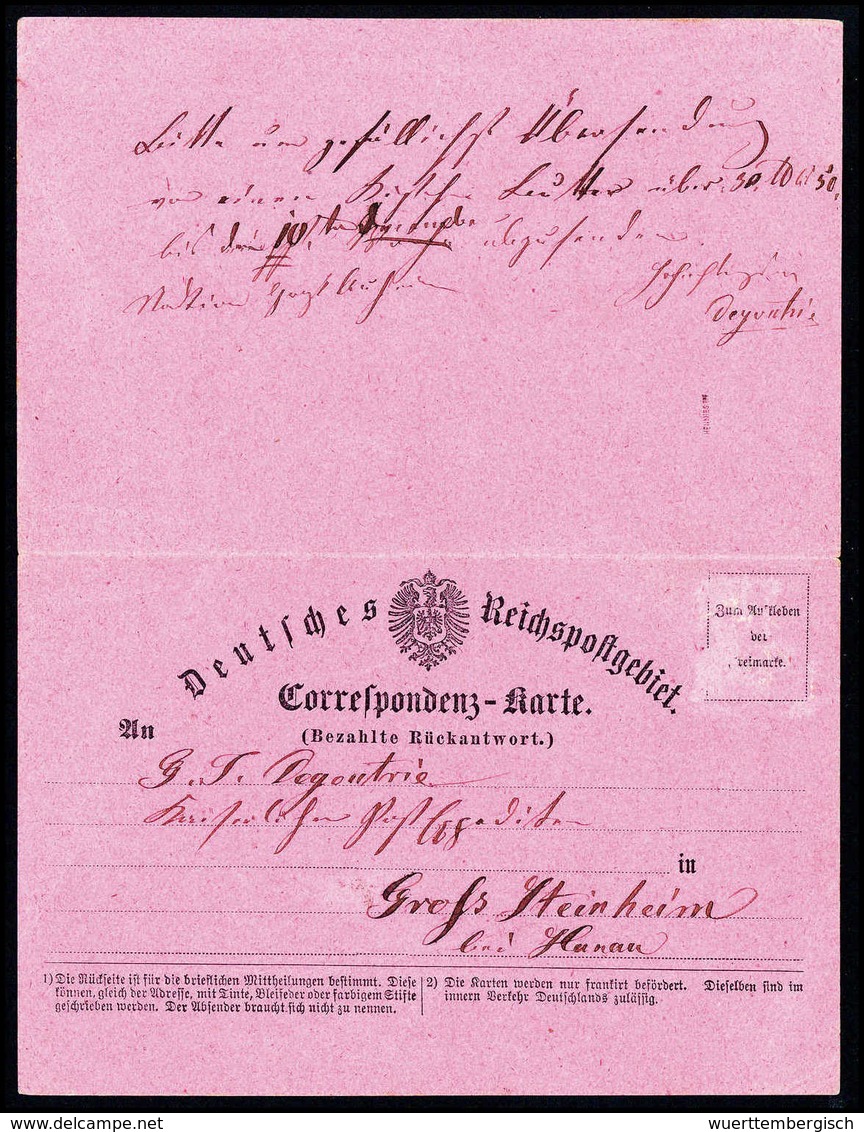 Bitte um gefälligst Übersendung
von einen Butter über 30 50
bis den 10. abzusenden
Station
Degoutrie
Deutsches Reichspostgebiet.
Zum Aufkleben
der
Freimarke.
Correspondenz-Karte.
(Bezahlte Rückantwort.)
An
G. F. Degoutrie
Kaiserlichen Post Expediten
in
Gross Steinheim
bei Hanau
1) Die Rückseite ist für die brieflichen Mittheilungen bestimmt. Diese
können, gleich der Adresse, mit Tinte, Bleifeder oder farbigem Stifte
geschrieben werden. Der Absender braucht sich nicht zu nennen.
2) Die Karten werden nur frankirt befördert. Dieselben sind im
innern Verkehr Deutschlands zulässig.
www.delcampe.net
wuerttembergisch